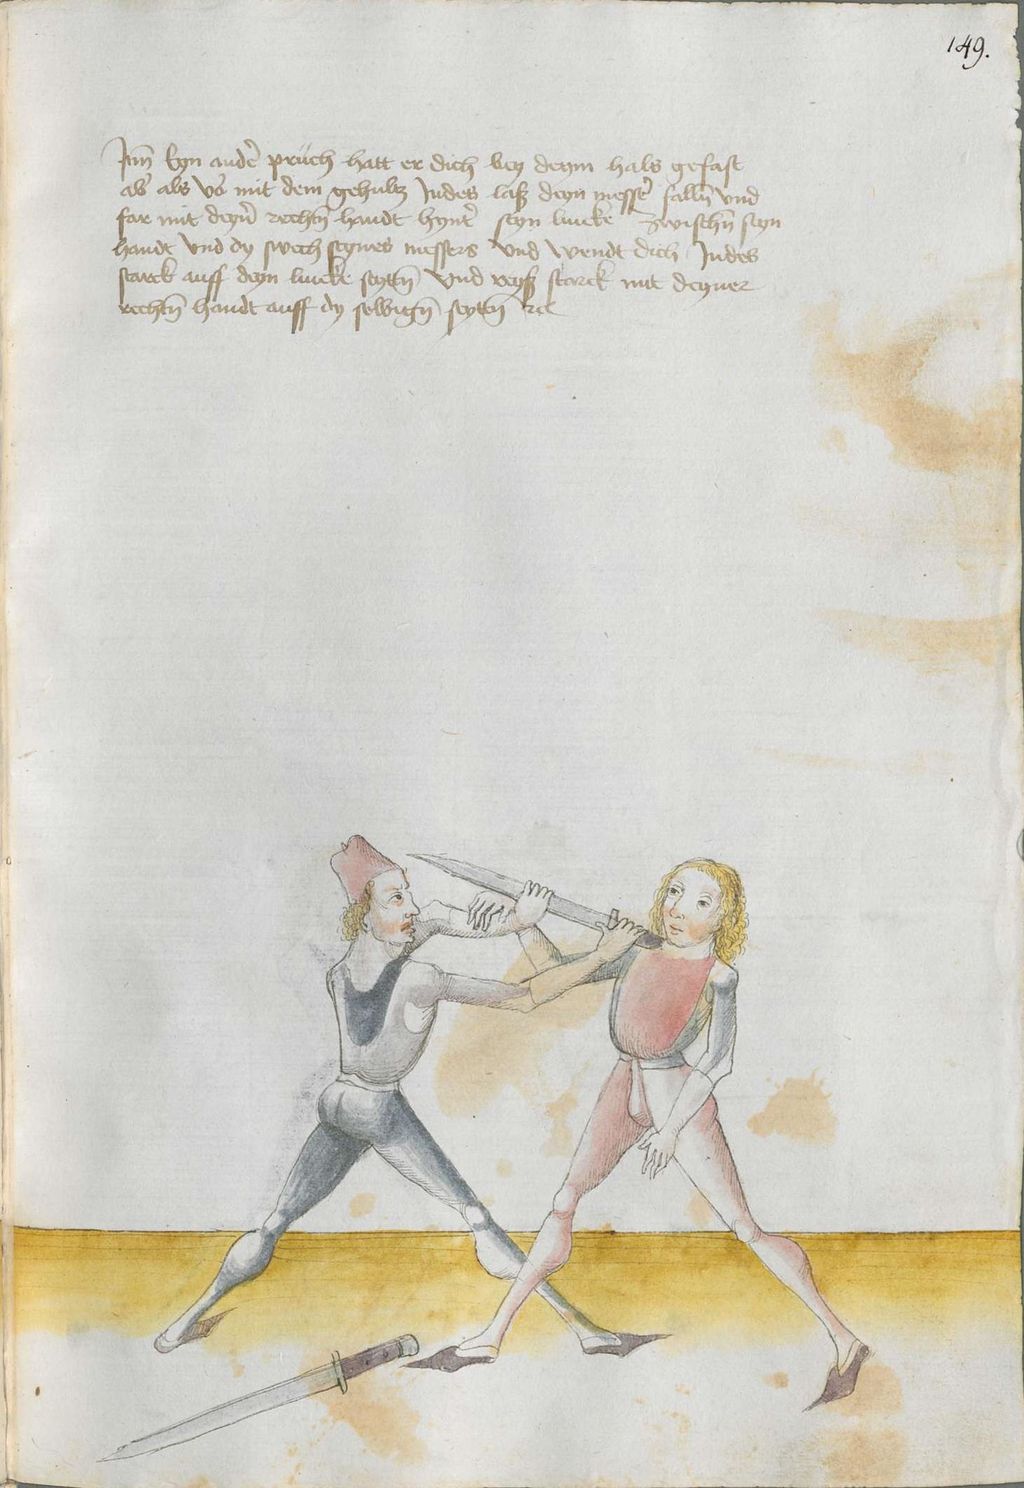 149.
Jtm̃ Eyn ander̃ pruch hatt er dich bey deym hals gefast
ab̃ als vö mit dem gehultz Jndes laß deyn messer̃ falln̄ vnd
far mit deyn̄ rechtn̄ handt hynt̃ seyn lincke zwischn̄ seyn
handt vnd dy swech seynes messers vnd wendt dich Jndes
starck auff deyn lincke seyttn̄ vnd reyß starck mit deyner
rechtn̄ handt auff dy selbign̄ seyttn̄ rc